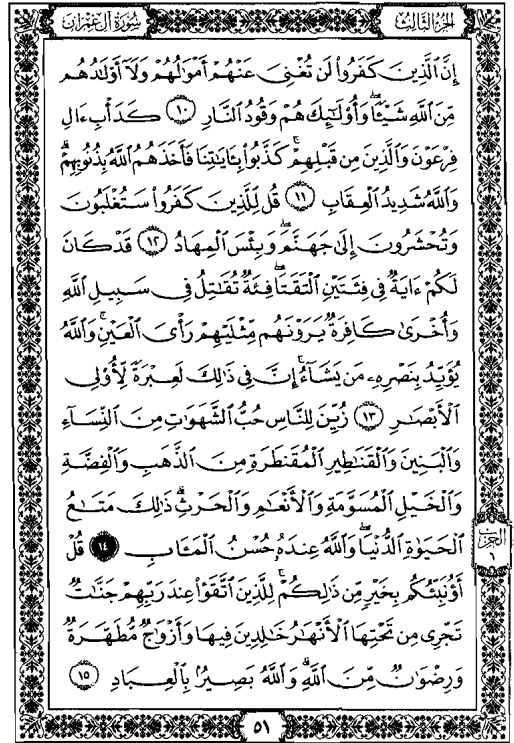 سورة آل عمران
الجزء الثالث
إِنَّ ٱلَّذِينَ كَفَرُوا۟ لَن تُغْنِىَ عَنْهُمْ أَمْوَٰلُهُمْ وَلَآ أَوْلَٰدُهُم
مِّنَ ٱللَّهِ شَيْـًٔا ۖ وَأُو۟لَٰٓئِكَ هُمْ وَقُودُ ٱلنَّارِ ١٠ كَدَأْبِ ءَالِ
فِرْعَوْنَ وَٱلَّذِينَ مِن قَبْلِهِمْ ۚ كَذَّبُوا۟ بِـَٔايَٰتِنَا فَأَخَذَهُمُ ٱللَّهُ بِذُنُوبِهِمْ ۗ
وَٱللَّهُ شَدِيدُ ٱلْعِقَابِ ١١ قُل لِّلَّذِينَ كَفَرُوا۟ سَتُغْلَبُونَ
وَتُحْشَرُونَ إِلَىٰ جَهَنَّمَ ۚ وَبِئْسَ ٱلْمِهَادُ ١٢ قَدْ كَانَ
لَكُمْ ءَايَةٌ فِى فِئَتَيْنِ ٱلْتَقَتَا ۖ فِئَةٌ تُقَٰتِلُ فِى سَبِيلِ ٱللَّهِ
وَأُخْرَىٰ كَافِرَةٌ يَرَوْنَهُم مِّثْلَيْهِمْ رَأْىَ ٱلْعَيْنِ ۚ وَٱللَّهُ
يُؤَيِّدُ بِنَصْرِهِۦ مَن يَشَآءُ ۗ إِنَّ فِى ذَٰلِكَ لَعِبْرَةً لِّأُو۟لِى
ٱلْأَبْصَٰرِ ١٣ زُيِّنَ لِلنَّاسِ حُبُّ ٱلشَّهَوَٰتِ مِنَ ٱلنِّسَآءِ
وَٱلْبَنِينَ وَٱلْقَنَٰطِيرِ ٱلْمُقَنطَرَةِ مِنَ ٱلذَّهَبِ وَٱلْفِضَّةِ
وَٱلْخَيْلِ ٱلْمُسَوَّمَةِ وَٱلْأَنْعَٰمِ وَٱلْحَرْثِ ۗ ذَٰلِكَ مَتَٰعُ
ٱلْحَيَوٰةِ ٱلدُّنْيَا ۖ وَٱللَّهُ عِندَهُۥ حُسْنُ ٱلْمَـَٔابِ ١٤ قُلْ
أَؤُنَبِّئُكُم بِخَيْرٍ مِّن ذَٰلِكُمْ ۚ لِلَّذِينَ ٱتَّقَوْا۟ عِندَ رَبِّهِمْ جَنَّٰتٌ
تَجْرِى مِن تَحْتِهَا ٱلْأَنْهَٰرُ خَٰلِدِينَ فِيهَا وَأَزْوَٰجٌ مُّطَهَّرَةٌ
وَرِضْوَٰنٌ مِّنَ ٱللَّهِ ۗ وَٱللَّهُ بَصِيرٌۢ بِٱلْعِبَادِ ١٥
الحزب
٦
٥١